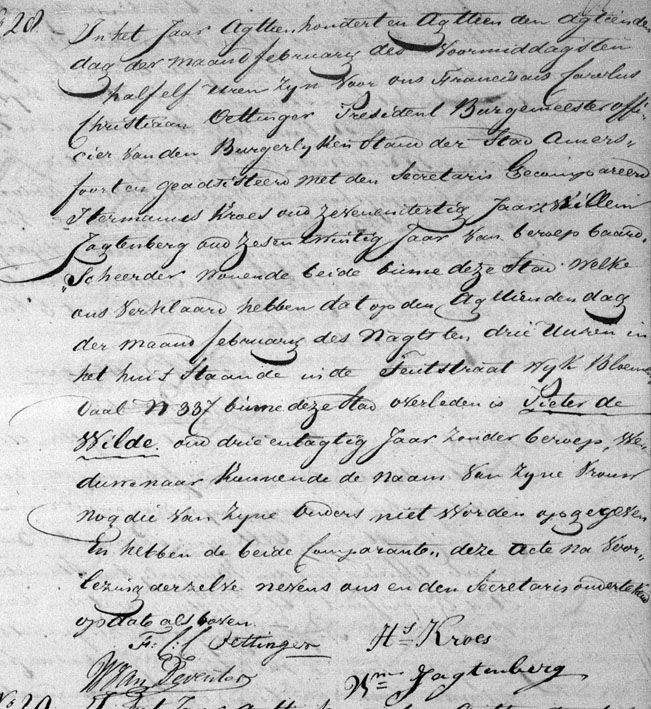 28 In het Jaar Agttien honderd en Agttien den Agtienden
dag der maand february des Voormiddags ten
half elf uren zyn voor ons Franciscus Carolus
Christiaan Oettinger President Burgemeester offi-
cier van den Burgerlyken Stand der Stad Amers-
foort en geadsisteerd met den Secretaris Gecompareerd
Hermannus Kroes oud zevenendertig Jaar & Willem
Jagtenberg oud zesentwintig Jaar van beroep baard
Scheerder wonende beide binne deze Stad. Welke
ons verklaard hebben dat op den Agttienden dag
der maand february des Nagts ten drie Uuren in
het huis Staande in de Teutstraat Wyk Bloemen
daal N 337 binne deze Stad overleden is Pieter de
Wilde. oud drie entagtig Jaar zonder beroep, We-
duwenaar kunnende de naam van zyne Vrouw
nog die van zyne ouders niet worden opgegeven
En hebben de beide Comparanten deze acte na voor-
lezing derzelve nevens ons en den Secretaris ondertekend
op dato als boven.
F: C: C Oettinger Hs Kroes
W van Deventer Wm Jagtenberg